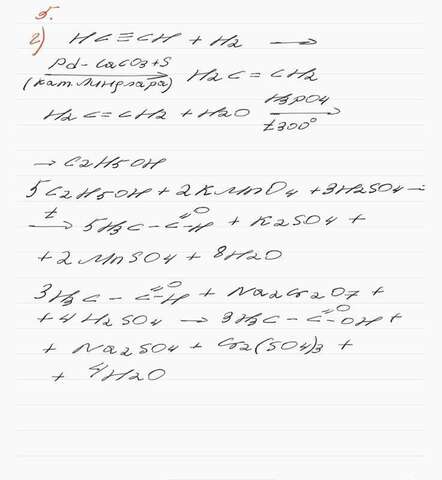 5.
г) HC≡CH + H2 →
Pd-CaCO3+S
(кат. Линдлара) → H2C=CH2
H2C=CH2 + H2O H3PO4 t300° →
→ C2H5OH
5C2H5OH + 2KMnO4 + 3H2SO4 →
t → 5H3C-C=O-H + K2SO4 +
+ 2MnSO4 + 8H2O
3H3C-C=O-H + Na2Cr2O7 +
+ 4H2SO4 → 3H3C-C=O-OH +
+ Na2SO4 + Cr2(SO4)3 +
+ 4H2O